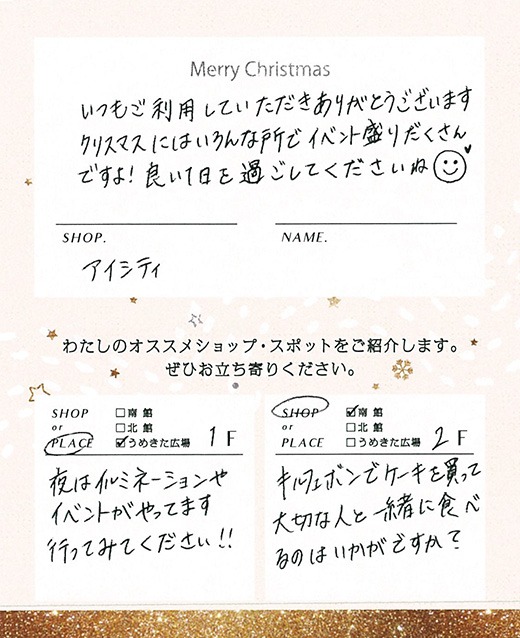 Merry Christmas
いつもご利用していただきありがとうございます
クリスマスにはいろんな所でイベント盛りだくさん
ですよ！良い1日を過ごしてくださいね
SHOP.
NAME.
アイシティ
わたしのオススメショップ・スポットをご紹介します。
ぜひお立ち寄りください。
SHOP
or
PLACE
□南館
□北館
☑うめきた広場
1F
夜はイルミネーションや
イベントがやってます
行ってみてください!!
SHOP
or
PLACE
☑南館
□北館
□うめきた広場
2F
キルフェボンでケーキを買って
大切な人と一緒に食べ
るのはいかがですか？